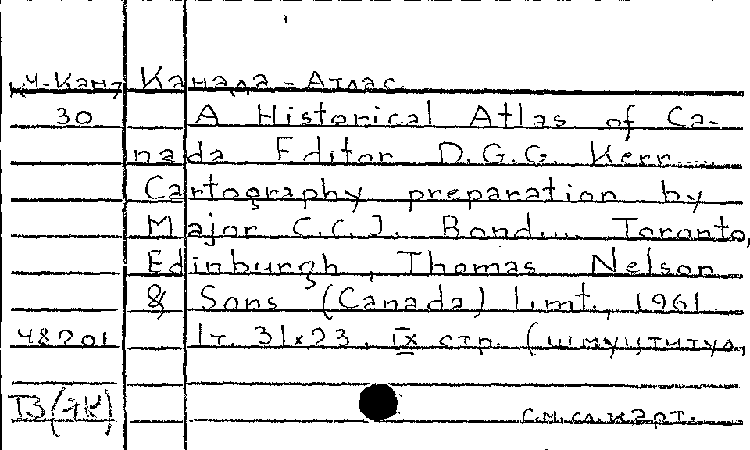 Канада - Атлас
30 A Historical Atlas of Ca-
nada Editor D.G.G. Kerr
Cartography preparation by
Major C.C.J. Bond... Toronto,
Edinburgh, Thomas Nelson
& Sons (Canada) limt., 1961
48201 1т. 31×23, IX стр. (шмуцтитул,
Т3(7К) см.сл.карт.